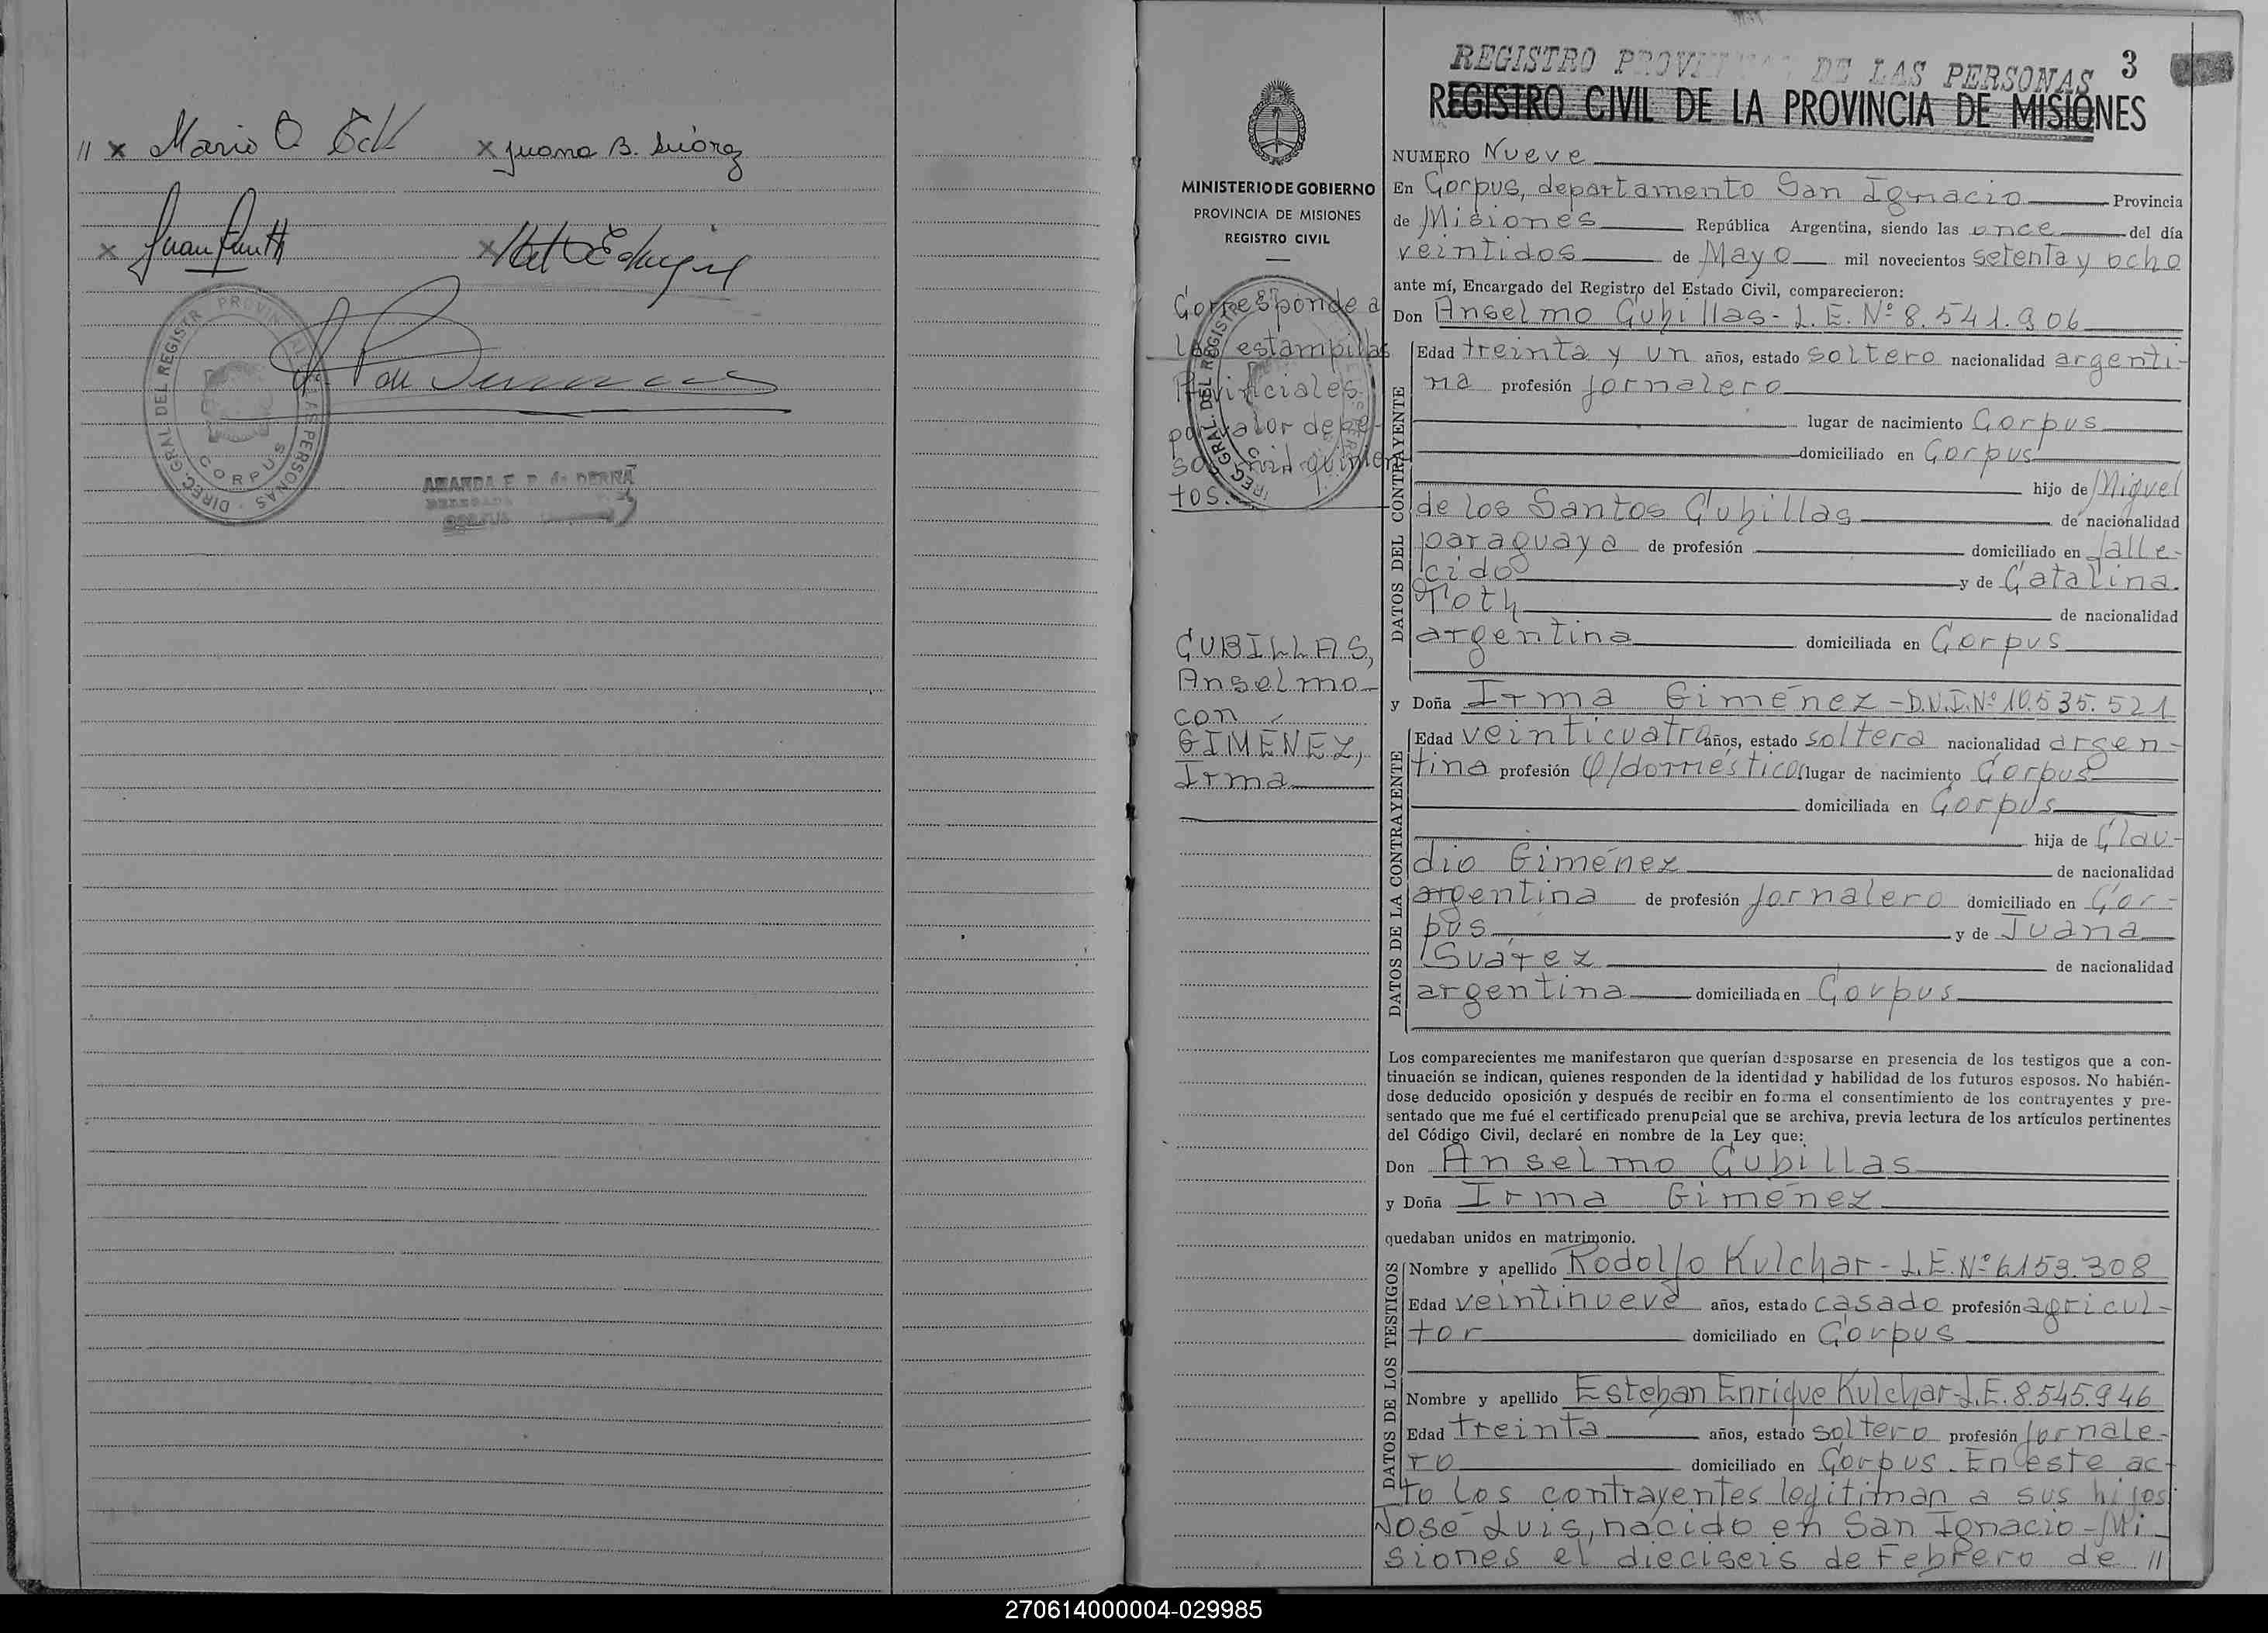 // x Mario O. Eck x Juana B. Suárez
x Juan x
DIREC. GRAL. DEL REGISTR PROVINCIAL LAS PERSONAS
CORPUS
AMANDA E. P. de DERNA
CORPUS
REGISTRO PROVINCIAL DE LAS PERSONAS
3
REGISTRO CIVIL DE LA PROVINCIA DE MISIONES
MINISTERIO DE GOBIERNO
PROVINCIA DE MISIONES
REGISTRO CIVIL
Corresponde a
las estampillas
Provinciales
por valor de pe-
sos mil quinien
tos.
CUBILLAS,
Anselmo
con
GIMÉNEZ,
Irma
NUMERO Nueve
En Corpus, departamento San Ignacio Provincia
de Misiones República Argentina, siendo las once del día
veintidos de Mayo mil novecientos setenta y ocho
ante mí, Encargado del Registro del Estado Civil, comparecieron:
Don Anselmo Cubillas - L.E. Nº 8.541.906
DATOS DEL CONTRAYENTE
Edad treinta y un años, estado soltero nacionalidad argenti-
na profesión jornalero
lugar de nacimiento Corpus
domiciliado en Corpus
hijo de Miguel
de los Santos Cubillas de nacionalidad
paraguaya de profesión domiciliado en falle-
cido y de Catalina
Toth de nacionalidad
argentina domiciliada en Corpus
y Doña Irma Giménez - D.N.I. Nº 10.535.521
DATOS DE LA CONTRAYENTE
Edad veinticuatro años, estado soltera nacionalidad argen-
tina profesión q/domésticos lugar de nacimiento Corpus
domiciliada en Corpus
hija de Clau-
dio Giménez de nacionalidad
argentina de profesión jornalero domiciliado en Cor-
pus y de Juana
Suárez de nacionalidad
argentina domiciliada en Corpus
Los comparecientes me manifestaron que querían desposarse en presencia de los testigos que a con-
tinuación se indican, quienes responden de la identidad y habilidad de los futuros esposos. No habién-
dose deducido oposición y después de recibir en forma el consentimiento de los contrayentes y pre-
sentado que me fué el certificado prenupcial que se archiva, previa lectura de los artículos pertinentes
del Código Civil, declaré en nombre de la Ley que:
Don Anselmo Cubillas
y Doña Irma Giménez
quedaban unidos en matrimonio.
DATOS DE LOS TESTIGOS
Nombre y apellido Rodolfo Kulchar - L.E. Nº 6153.308
Edad veintinueve años, estado casado profesión agricul-
tor domiciliado en Corpus
Nombre y apellido Esteban Enrique Kulchar - L.E. 8.545.946
Edad treinta años, estado soltero profesión jornale-
ro domiciliado en Corpus. En este ac-
to los contrayentes legitiman a sus hijos
José Luis, nacido en San Ignacio - Mi-
siones el dieciseis de Febrero de //
270614000004-029985